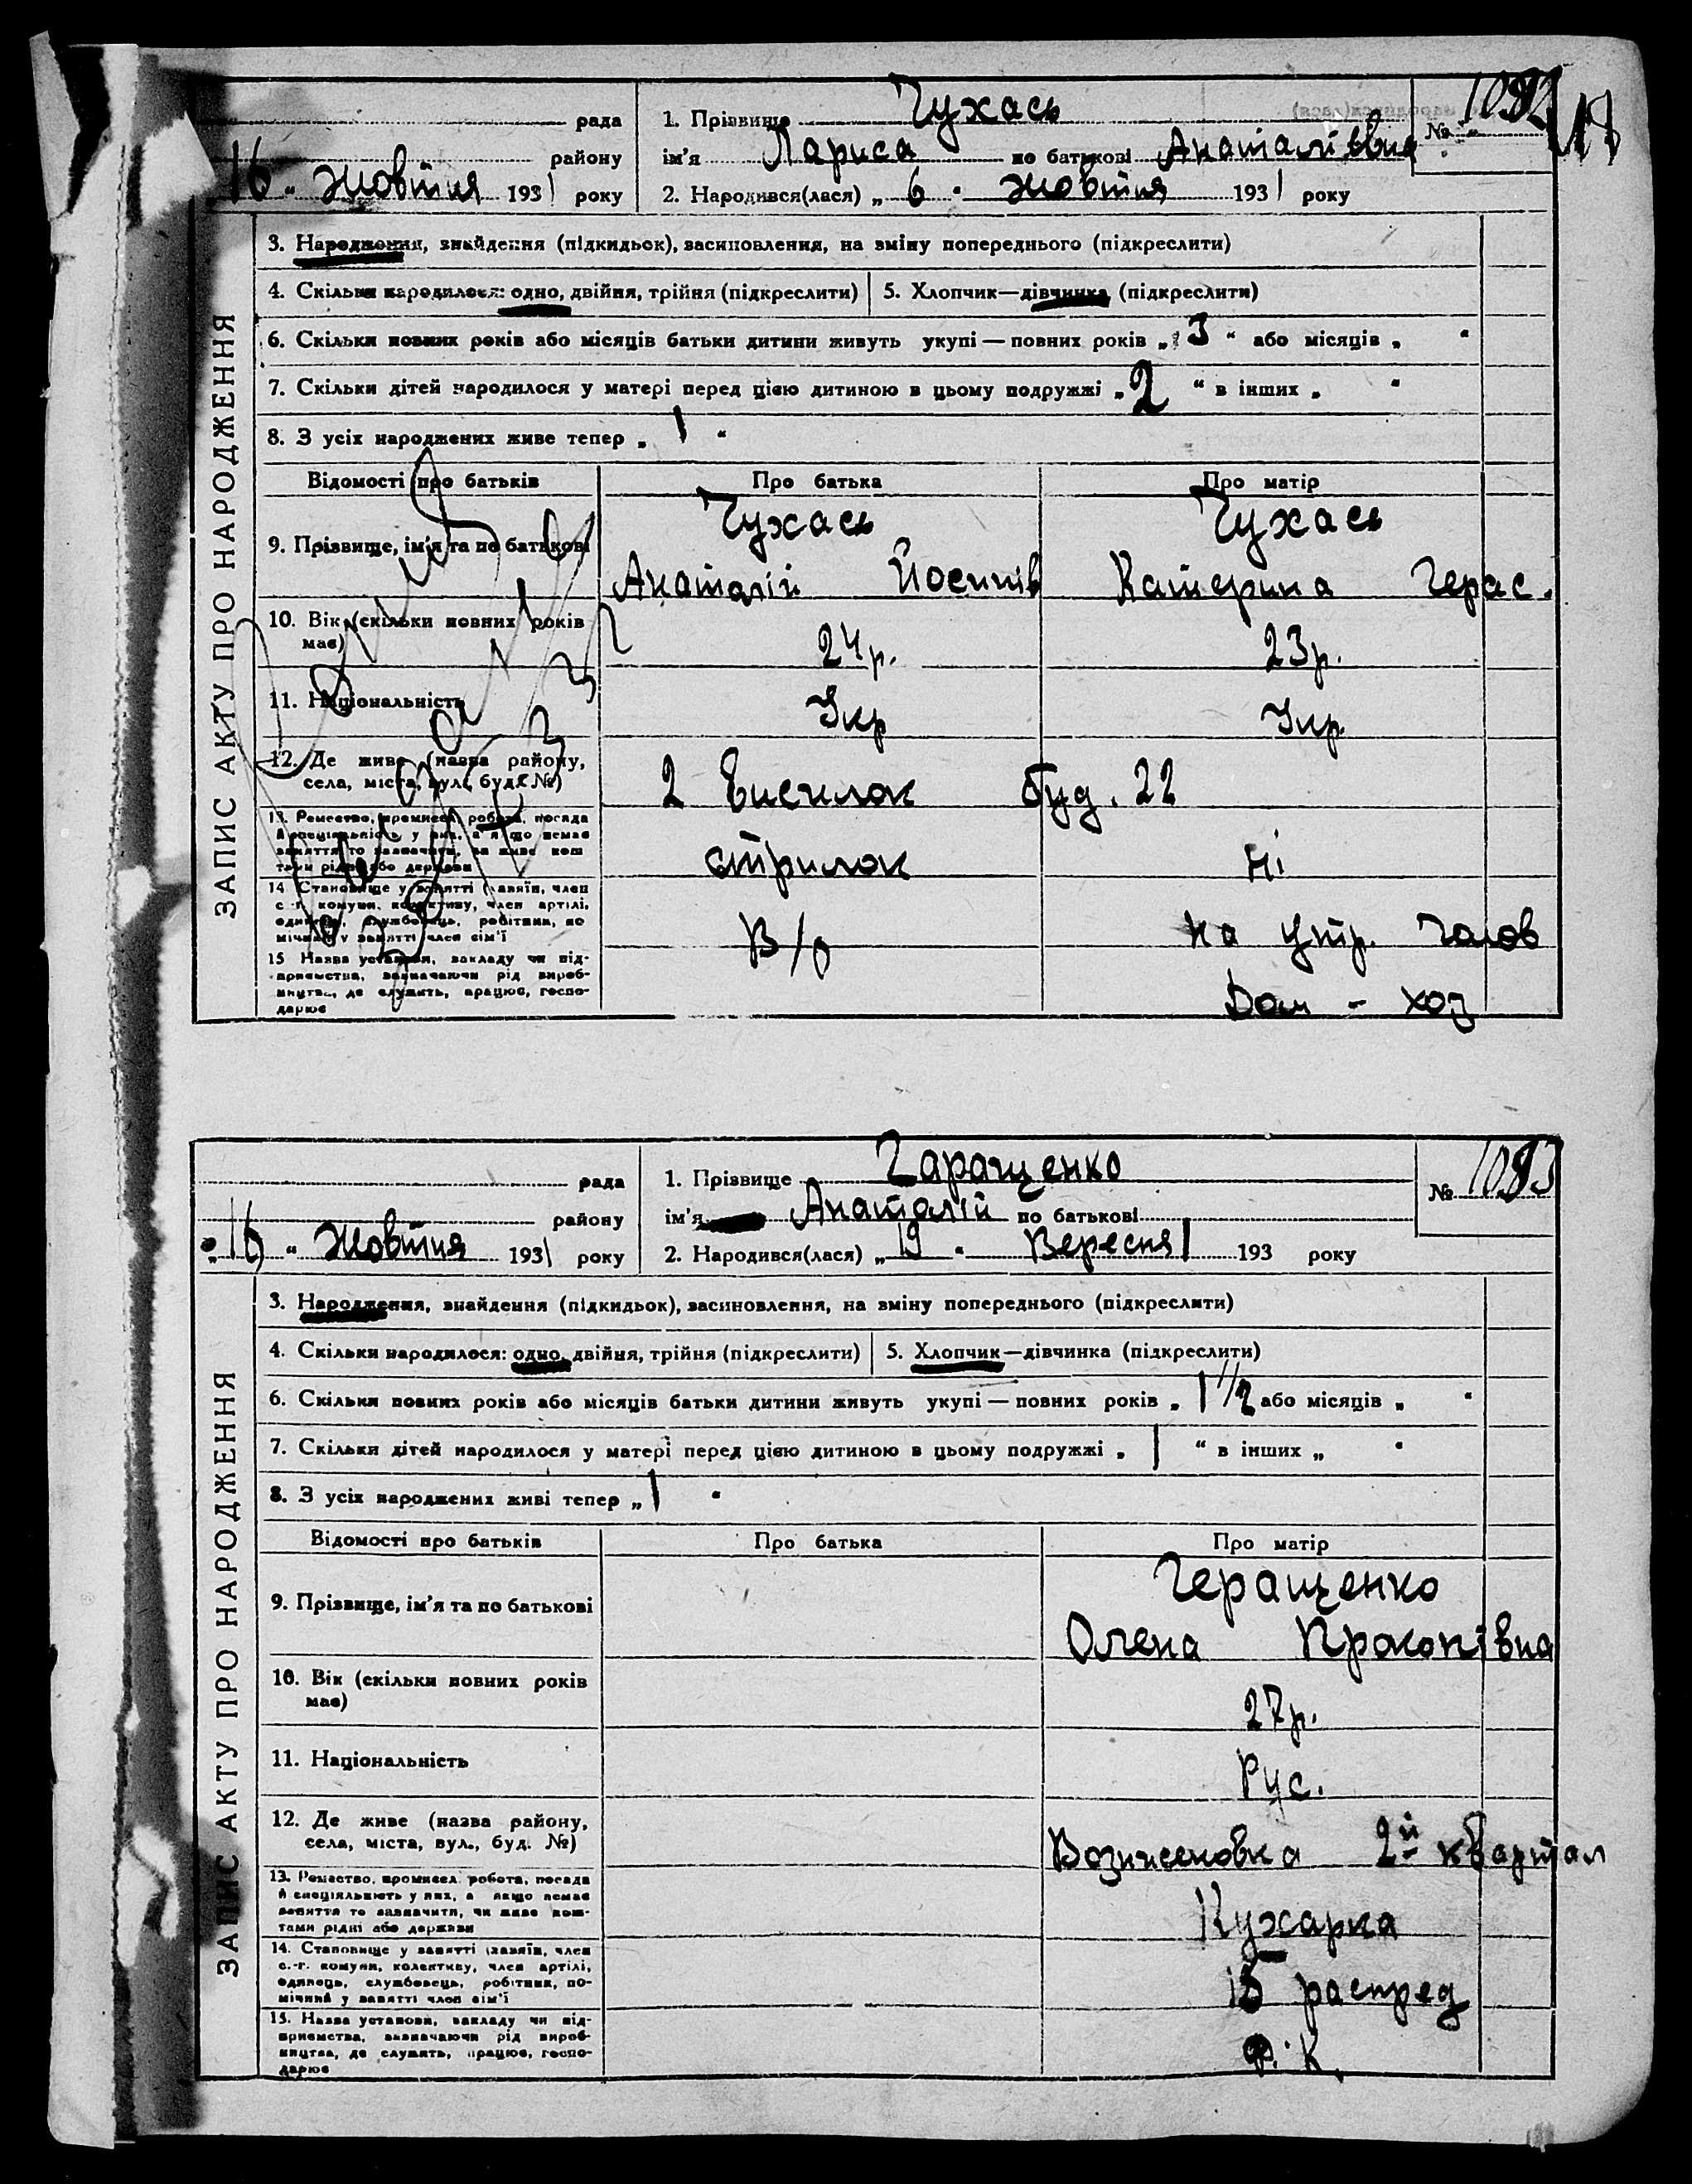 рада
району
„16“ жовтня 1931 року
1. Прізвище Чухась
ім'я Лариса по батькові Анаталіївна
2. Народився(лася) „6“ жовтня 1931 року
№ 1092
ЗАПИС АКТУ ПРО НАРОДЖЕННЯ
3. Народження, знайдення (підкидьок), засиновлення, на зміну попереднього (підкреслити)
4. Скільки народилося: одно, двійня, трійня (підкреслити) 5. Хлопчик—дівчинка (підкреслити)
6. Скільки повних років або місяців батьки дитини живуть укупі — повних років „3“ або місяців „ “
7. Скільки дітей народилося у матері перед цією дитиною в цьому подружжі „2“ в інших „ “
8. З усіх народжених живе тепер „1“
Відомості про батьків Про батька Про матір
9. Прізвище, ім'я та по батькові
Чухась Чухась
Анаталій Йосипів Катерина Герас.
10. Вік (скільки повних років
має)
24р. 23р.
11. Національність Укр Укр.
12. Де живе (назва району,
села, міста, вул., буд. №)
2 Виселок буд. 22
13. Ремество, промисел, робота, посада
й спеціяльність у них, а якщо немає
заняття то зазначити, чи живе кош-
тами рідні або держави
стрилок Ні
14 Становище у занятті (хазяїн, член
с.-г. комуни, колективу, член артілі,
одинець, службовець, робітник, по-
мічний у занятті член сім'ї
В/о на утр. чолов
15 Назва установи, закладу чи під-
приємства, зазначаючи рід вироб-
ництва, де служить, працює, госпо-
дарює
Дом - хоз
рада
району
„16“ жовтня 1931 року
1. Прізвище Гаращенко
ім'я Анаталій по батькові
2. Народився(лася) „19“ Вересня 1 193 року
№ 1093
ЗАПИС АКТУ ПРО НАРОДЖЕННЯ
3. Народження, знайдення (підкидьок), засиновлення, на зміну попереднього (підкреслити)
4. Скільки народилося: одно, двійня, трійня (підкреслити) 5. Хлопчик—дівчинка (підкреслити)
6. Скільки повних років або місяців батьки дитини живуть укупі — повних років „1 1/2 або місяців „ “
7. Скільки дітей народилося у матері перед цією дитиною в цьому подружжі „1“ в інших „ “
8. З усіх народжених живі тепер „1“
Відомості про батьків Про батька Про матір
9. Прізвище, ім'я та по батькові
Геращенко
Олена Прокопівна
10. Вік (скільки повних років
має)
27р.
11. Національність Рус.
12. Де живе (назва району,
села, міста, вул., буд. №)
Вознисеновка 2й квартал
13. Ремество, промисел, робота, посада
й спеціяльність у них, а якщо немає
заняття то зазначити, чи живе кош-
тами рідні або держави
Кухарка
14. Становище у занятті (хазяїн, член
с.-г. комуни, колективу, член артілі,
одинець, службовець, робітник, по-
мічний у занятті член сім'ї
15 распред
15. Назва установи, закладу чи під-
приємства, зазначаючи рід вироб-
ництва, де служить, працює, госпо-
дарює
Р. К.